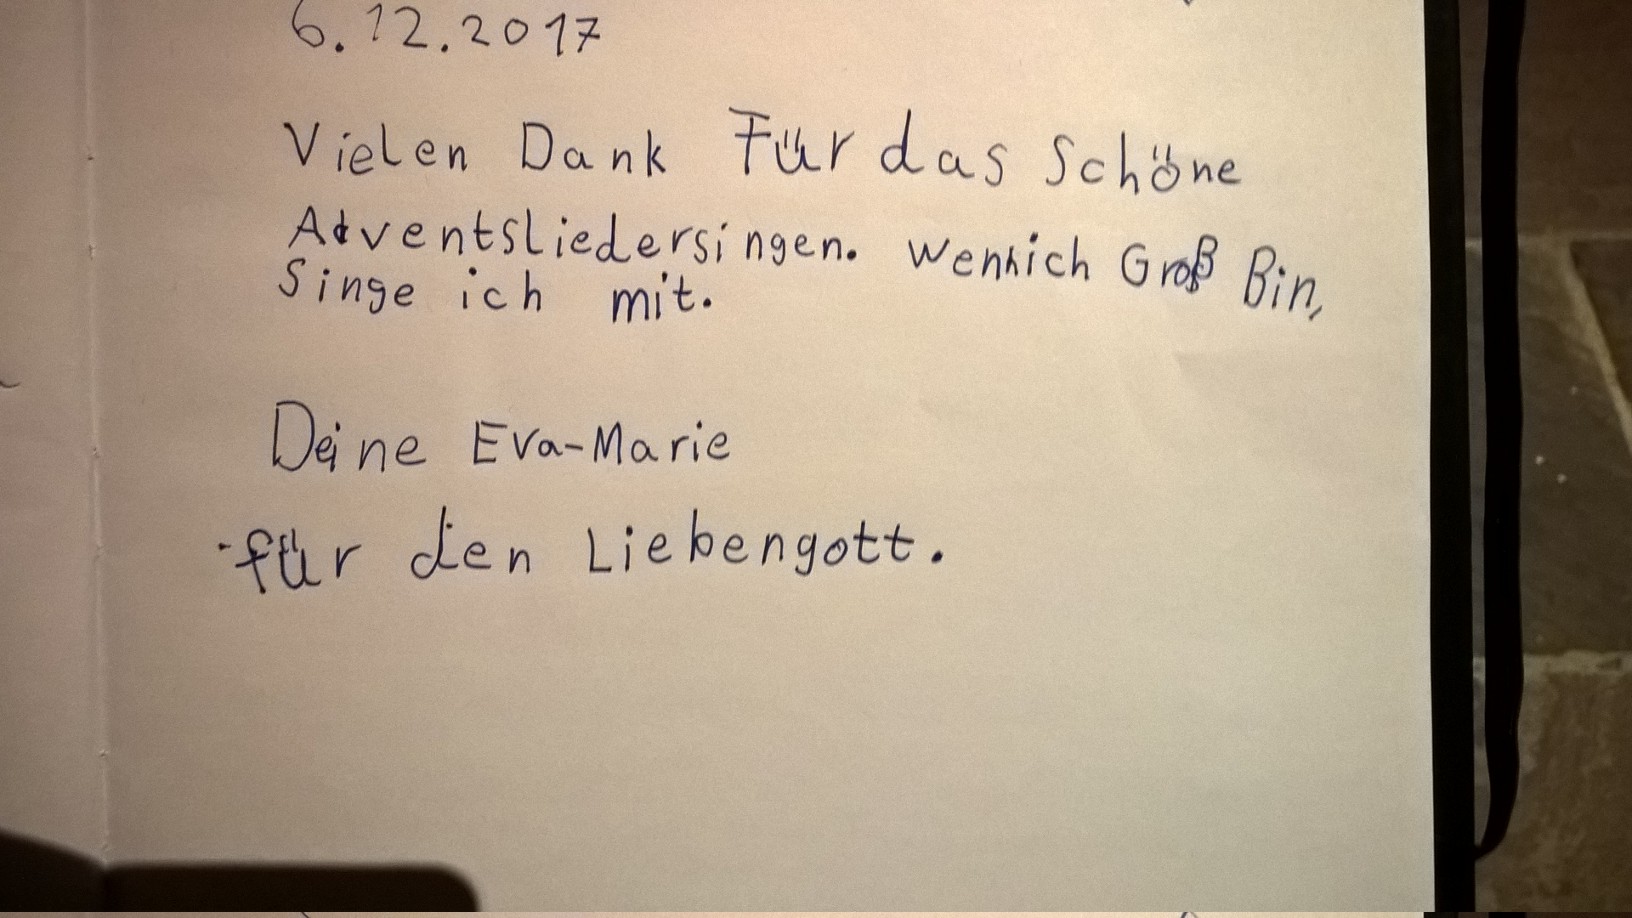 6.12.2017
Vielen Dank Für das Schöne
Adventsliedersingen. Wennich Groß Bin,
Singe ich mit.
Deine Eva-Marie
für den Liebengott.